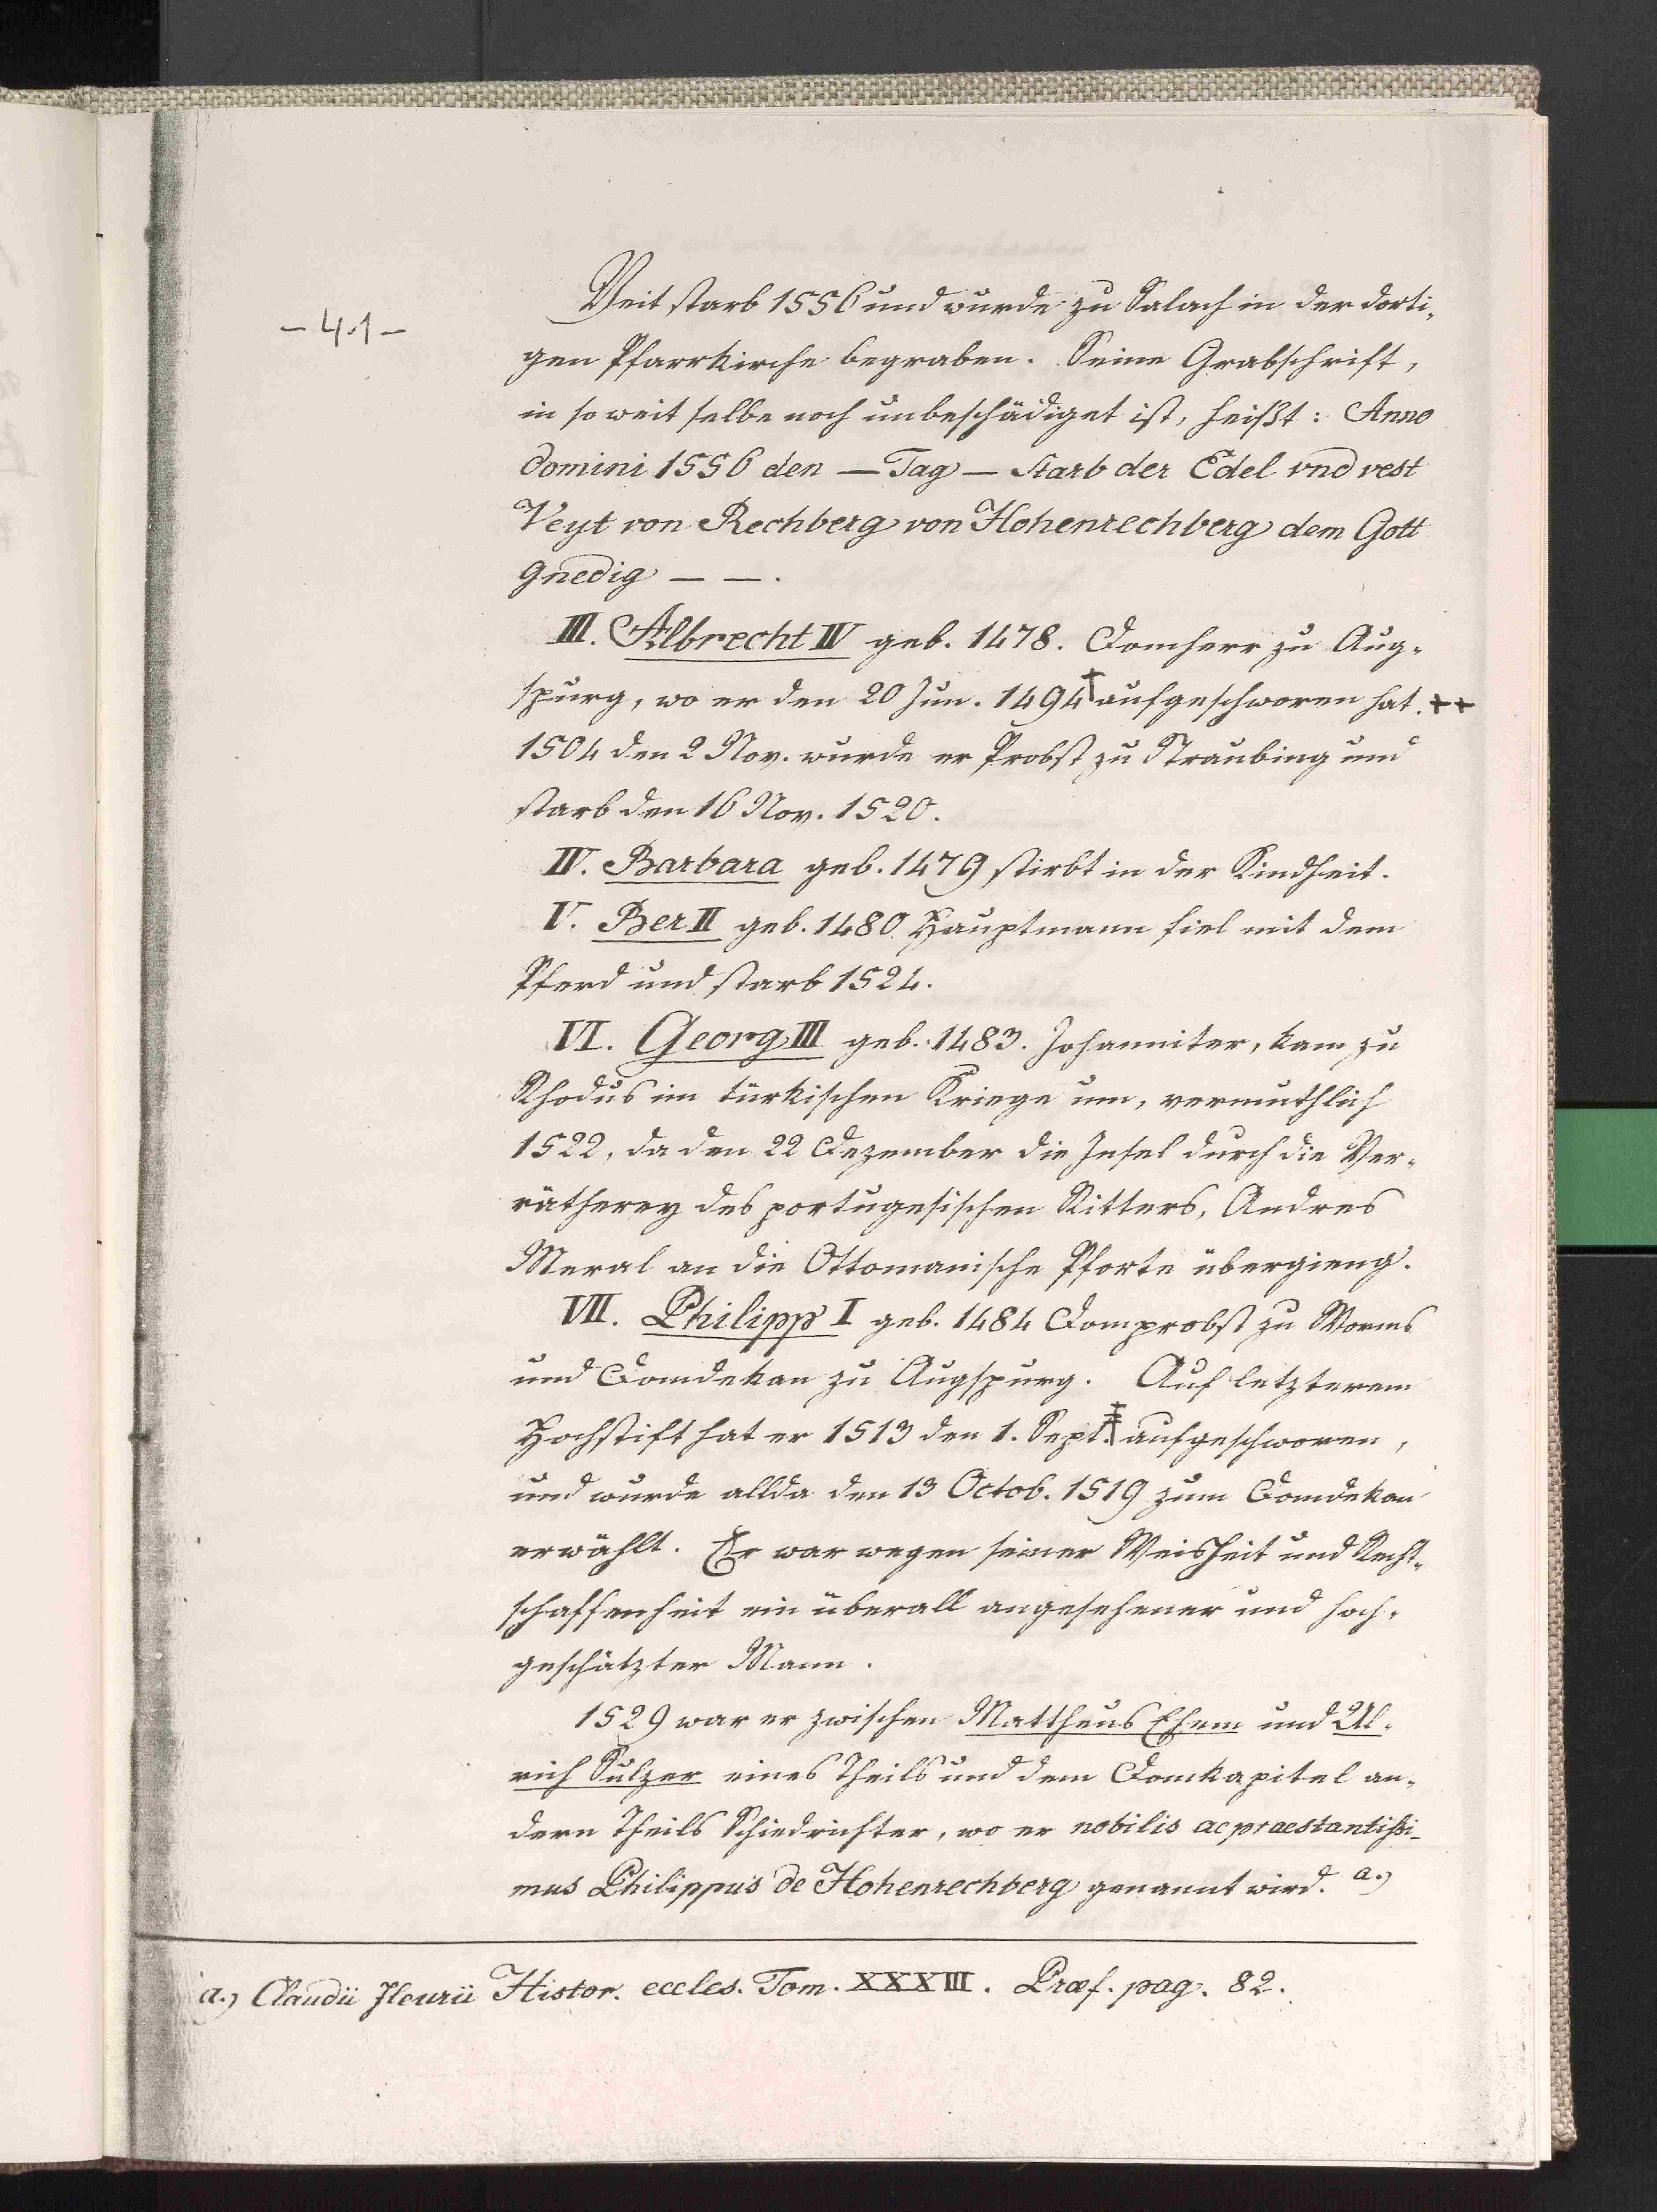 - 41 -
Veit starb 1556 und wurde zu Salach in der dorti-
gen Pfarrkirche begraben. Seine Grabschrift,
in so weit selbe noch unbeschädiget ist, heißt: Anno
domini 1556 den — Tag — Starb der Edel vnd vest
Veyt von Rechberg von Hohenrechberg dem Gott
gnedig — —.
III. Albrecht IV geb. 1478. Domherr zu Aug-
spurg, wo er den 20 Jun. 1494 + aufgeschworen hat. ++
1504 den 2 Nov. wurde er Probst zu Straubing und
starb den 16 Nov. 1520.
IV. Barbara geb. 1479 stirbt in der Kindheit.
V. Ber II geb. 1480. Hauptmann fiel mit dem
Pferd und starb 1524.
VI. Georg III geb. 1483. Johanniter, kam zu
Rhodus im türkischen Kriege um, vermuthlich
1522, da den 22 Dezember die Insel durch die Ver-
rätherey des portugesischen Ritters, Andres
Meral an die Ottomanische Pforte übergieng.
VII. Philipp I geb. 1484 Domprobst zu Worms
und Domdekan zu Augspurg. Auf letzterem
Hochstift hat er 1513 den 1. Sept. ‡ aufgeschworen,
und wurde allda den 13 Octob. 1519 zum Domdekan
erwählt. Er war wegen seiner Weisheit und Recht-
schaffenheit ein überall angesehener und hoch-
geschätzter Mann.
1529 war er zwischen Mattheus Ehem und Ul-
rich Sulzer eines Theils und dem Domkapitel an-
dern Theils Schiedrichter, wo er nobilis ac praestantißi-
mus Philippus de Hohenrechberg genannt wird. a.)
a.) Claudii Fleurii Histor. eccles. Tom. XXXIII. Præf. pag. 82.